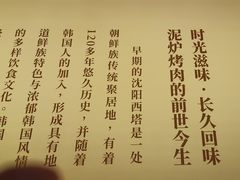 时光滋味·长久回味
泥炉烤肉的前世今生
早期的沈阳西塔是一处
朝鲜族传统聚居地，有着
120多年悠久历史，并随着
韩国人的加入，形成具有地
道鲜族特色与浓郁韩国风情
的多样饮食文化。